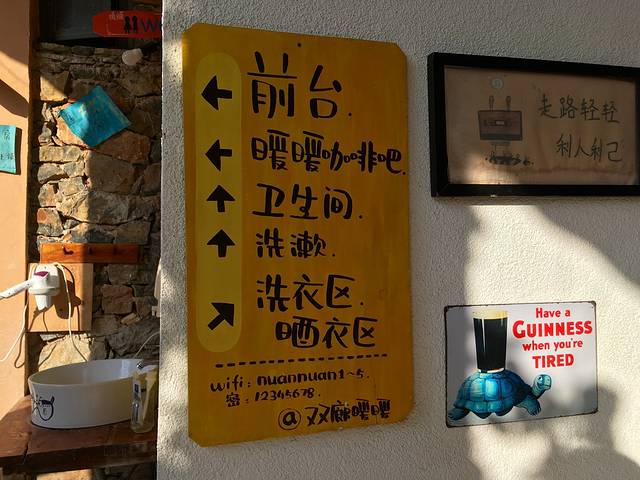 前台.
暖暖咖啡吧.
卫生间.
洗漱.
洗衣区.
晒衣区
wifi: nuannuan1~5.
密: 12345678.
@双廊暖暖
走路轻轻
利人利己
Have a
GUINNESS
when you're
TIRED